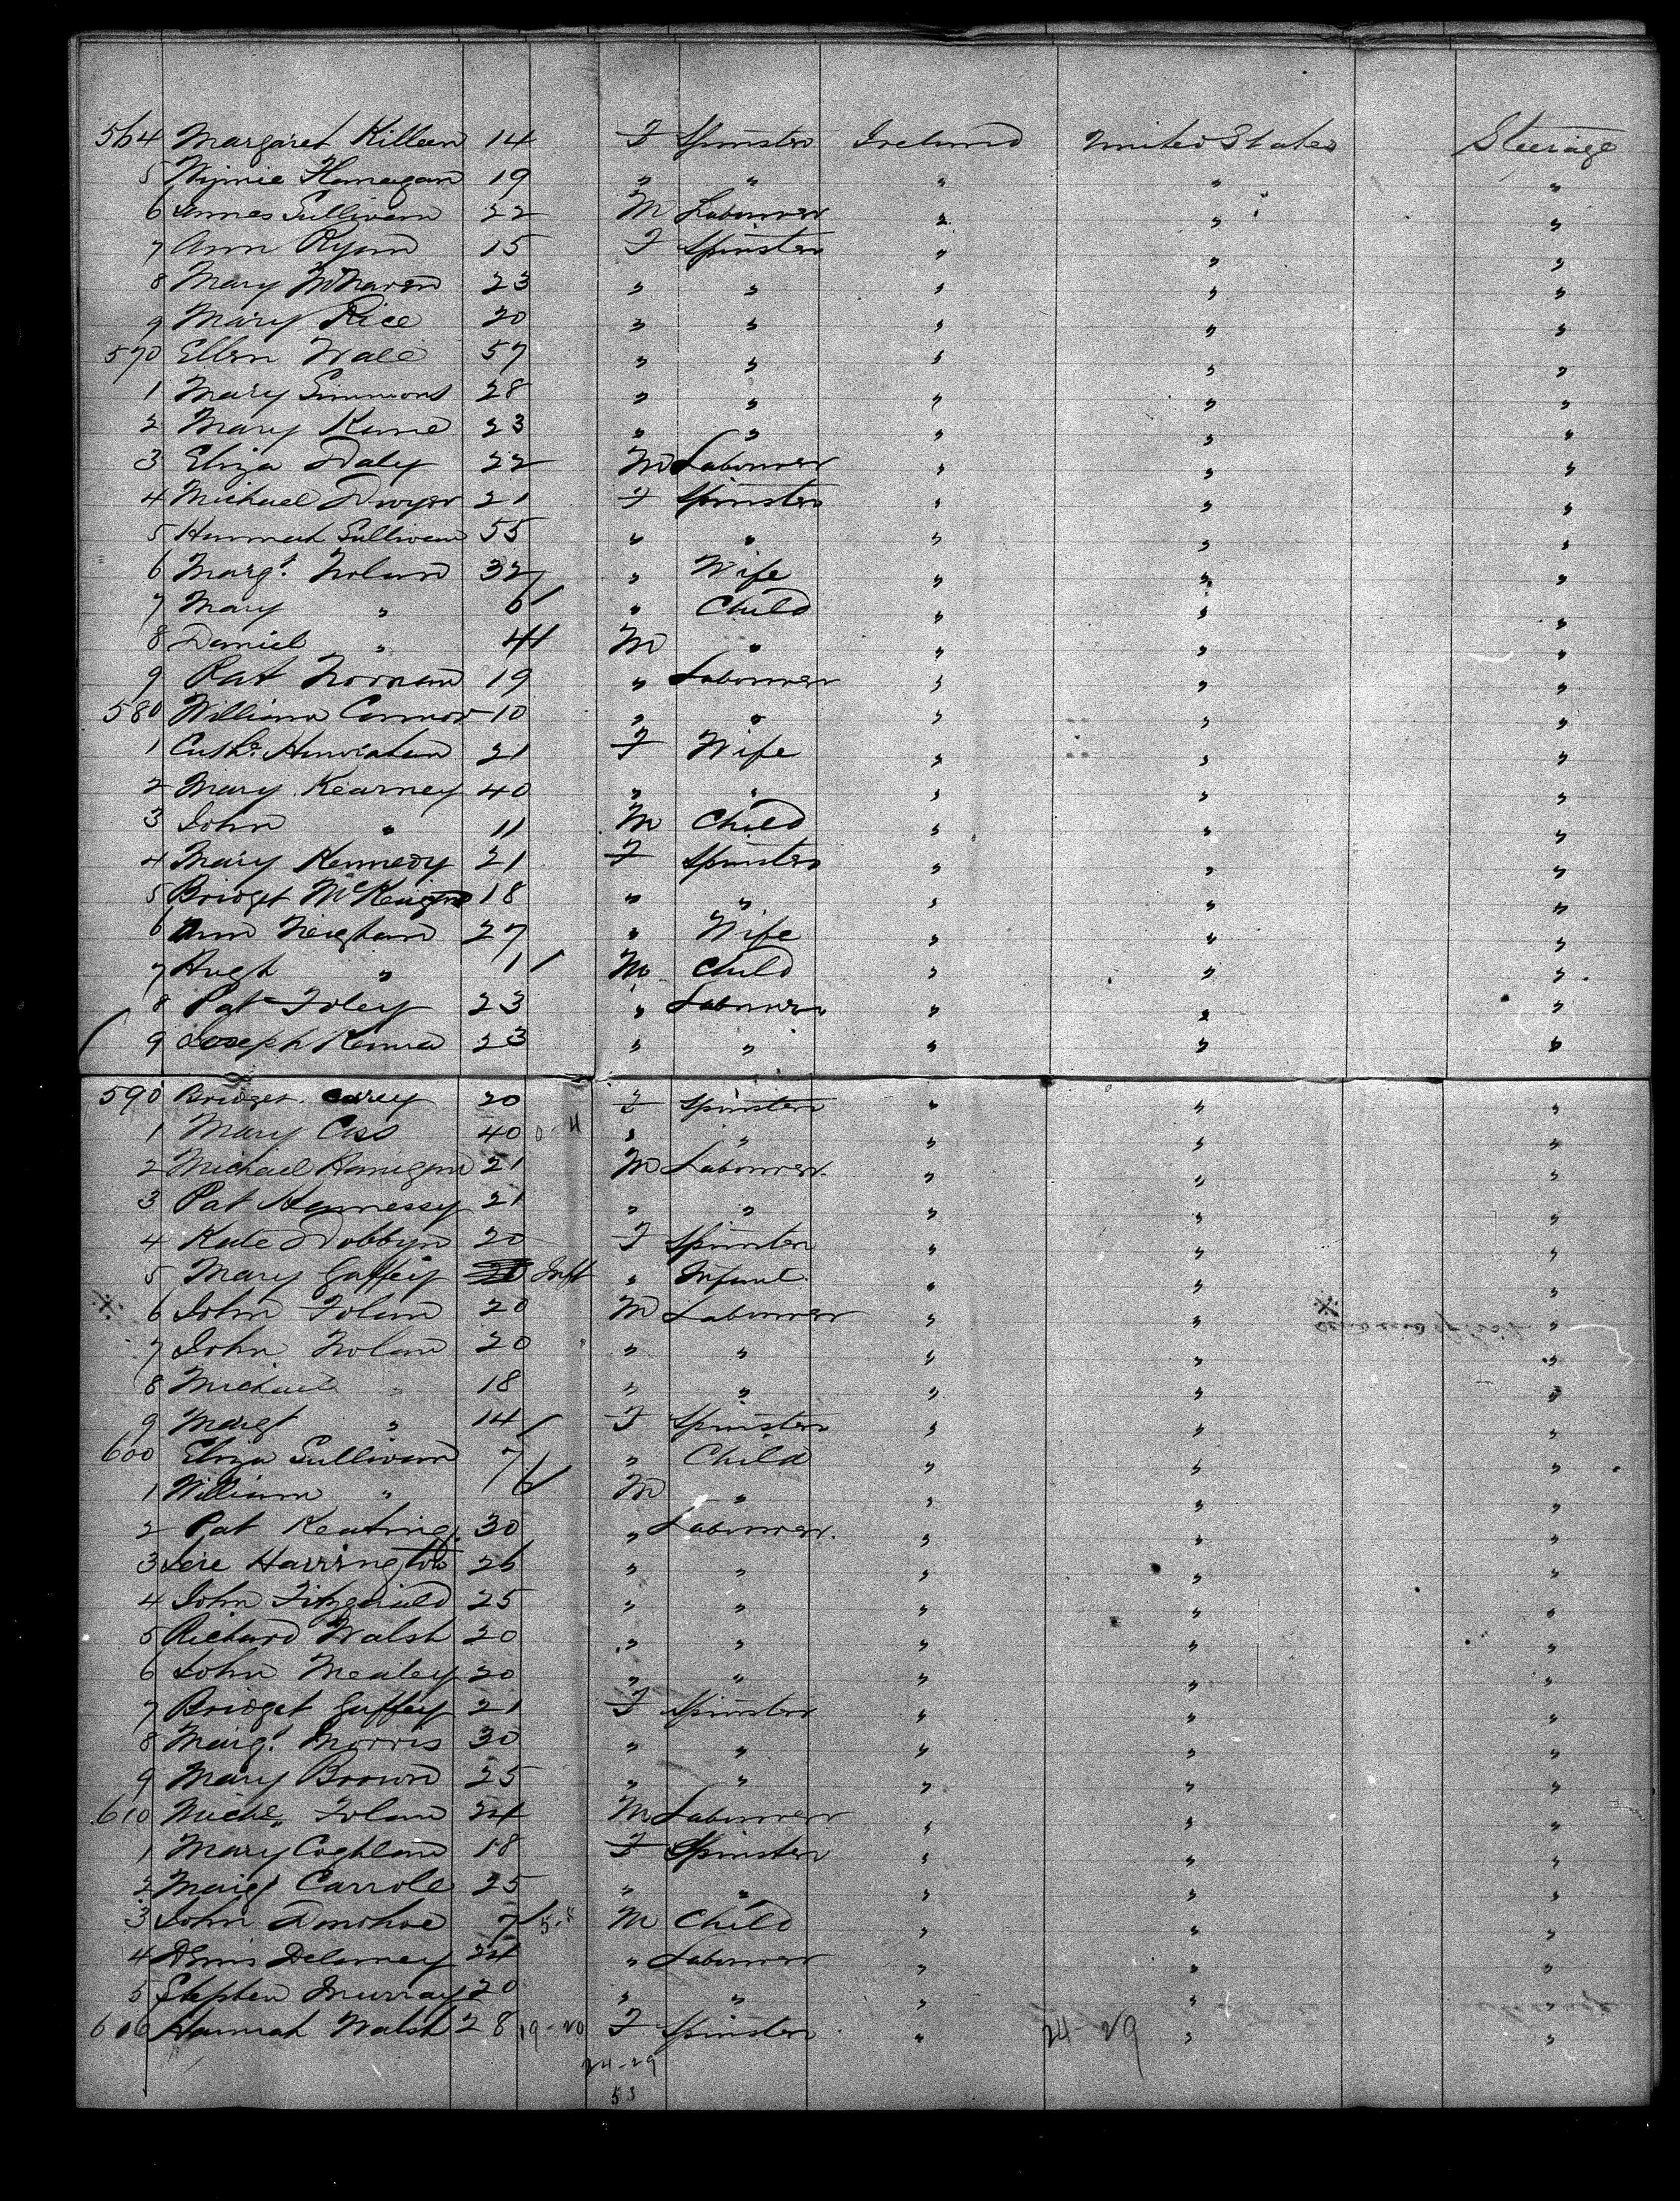 564 Margaret Killeen 14 F Spinster Ireland United States Steerage
5 Winnie Flanagan 19 " " " " "
6 James Sullivan 22 M Labourer " " "
7 Ann Ryan 15 F Spinster " " "
8 Mary 23 " " " " "
9 Mary Rice 20 " " " " "
570 Ellen Wall 57 " " " " "
1 Mary Simmons 28 " " " " "
2 Mary Kane 23 " " " " "
3 Eliza Daly 22 M Labourer " " "
4 Michael Dwyer 21 F Spinster " " "
5 Hannah Sullivan 55 " " " " "
6 Margt. Nolan 32 " Wife " " "
7 Mary " 6 " Child " " "
8 Daniel " 4 M " " " "
9 Pat Noonan 19 " Labourer " " "
580 William Connor 10 " " " " "
1 Cathe. 21 F Wife " " "
2 Mary Kearney 40 " " " " "
3 John " 11 M Child " " "
4 Mary Kennedy 21 F Spinster " " "
5 Bridget 18 " " " " "
6 Ann 27 " Wife " " "
7 Hugh " 1 M Child " " "
8 Pat Foley 23 " Labourer " " "
9 Joseph 23 " " " " "
590 Bridget Carey 20 F Spinster " " "
1 Mary Cass 40 " " " " "
2 Michael Hanigan 21 M Labourer " " "
3 Pat Hennessy 21 " " " " "
4 Kate Dobbyn 20 F Spinster " " "
5 Mary Gaffey Inft " Infant " " "
6 John Folan 20 M Labourer " " "
7 John Nolan 20 " " " " "
8 Michael " 18 " " " " "
9 Margt " 14 F Spinster " " "
600 Eliza Sullivan 7 " Child " " "
1 William " 6 M " " " "
2 Pat Keating 30 " Labourer " " "
3 Jere Harrington 26 " " " " "
4 John Fitzgerald 25 " " " " "
5 Richard Walsh 20 " " " " "
6 John Nealey 20 " " " " "
7 Bridget Gaffey 21 F Spinster " " "
8 Margt. Morris 30 " " " " "
9 Mary Brown 25 " " " " "
610 Michl. Folan 24 M Labourer " " "
1 Mary Coghlan 18 F Spinster " " "
2 Margt Carroll 25 " " " " "
3 John Donohoe 7 M Child " " "
4 Denis Delaney 24 " Labourer " " "
5 Stephen Murray 20 " " " " "
616 Hannah Walsh 28 19-20 F Spinster " 24-29 " "
24-29
53